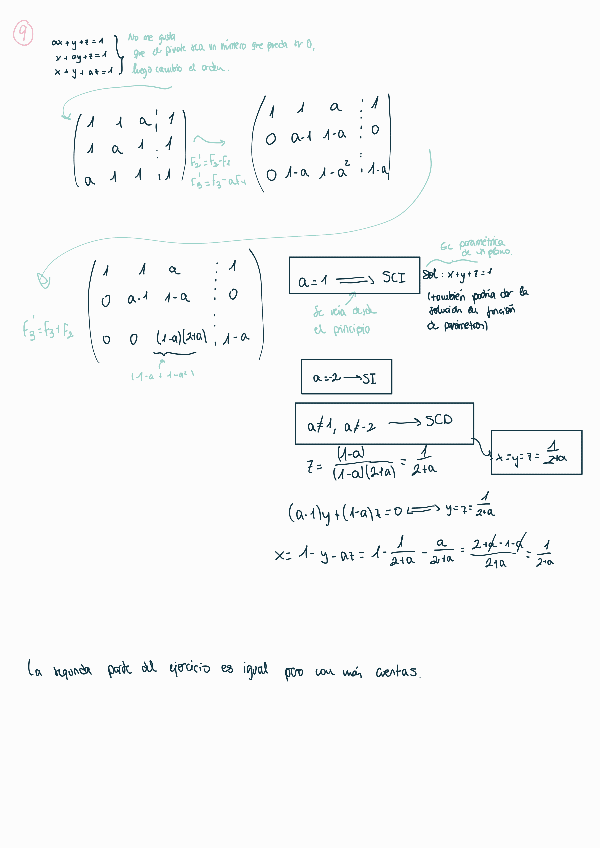 9
ax+y+z=1
x+ay+z=1
x+y+az=1
No me gusta
que el pivote sea un número que pueda ser 0,
luego cambio el orden.
1 1 a 1
1 a 1 1
a 1 1 1
F₂'=F₃-F₂
F₃'=F₃-aF₁
1 1 a 1
0 a-1 1-a 0
0 1-a 1-a² 1-a
F₃'=F₃+F₂
1 1 a 1
0 a-1 1-a 0
0 0 (1-a)(2+a) 1-a
(1-a+1-a²)
a=1 ⟹ SCI
Se veía desde
el principio
Ec paramétrica
de un plano.
Sol: x+y+z=1
(también podría dar la
solución en función
de parámetros)
a=-2 → SI
a≠1, a≠-2 → SCD
x=y=z= 1/2+a
z= (1-a)/(1-a)(2+a) = 1/2+a
(a-1)y+(1-a)z=0 ⟺ y=z= 1/2+a
x= 1-y-az = 1- 1/2+a - a/2+a = 2+a-1-a/2+a = 1/2+a
La segunda parte del ejercicio es igual pero con más cuentas.